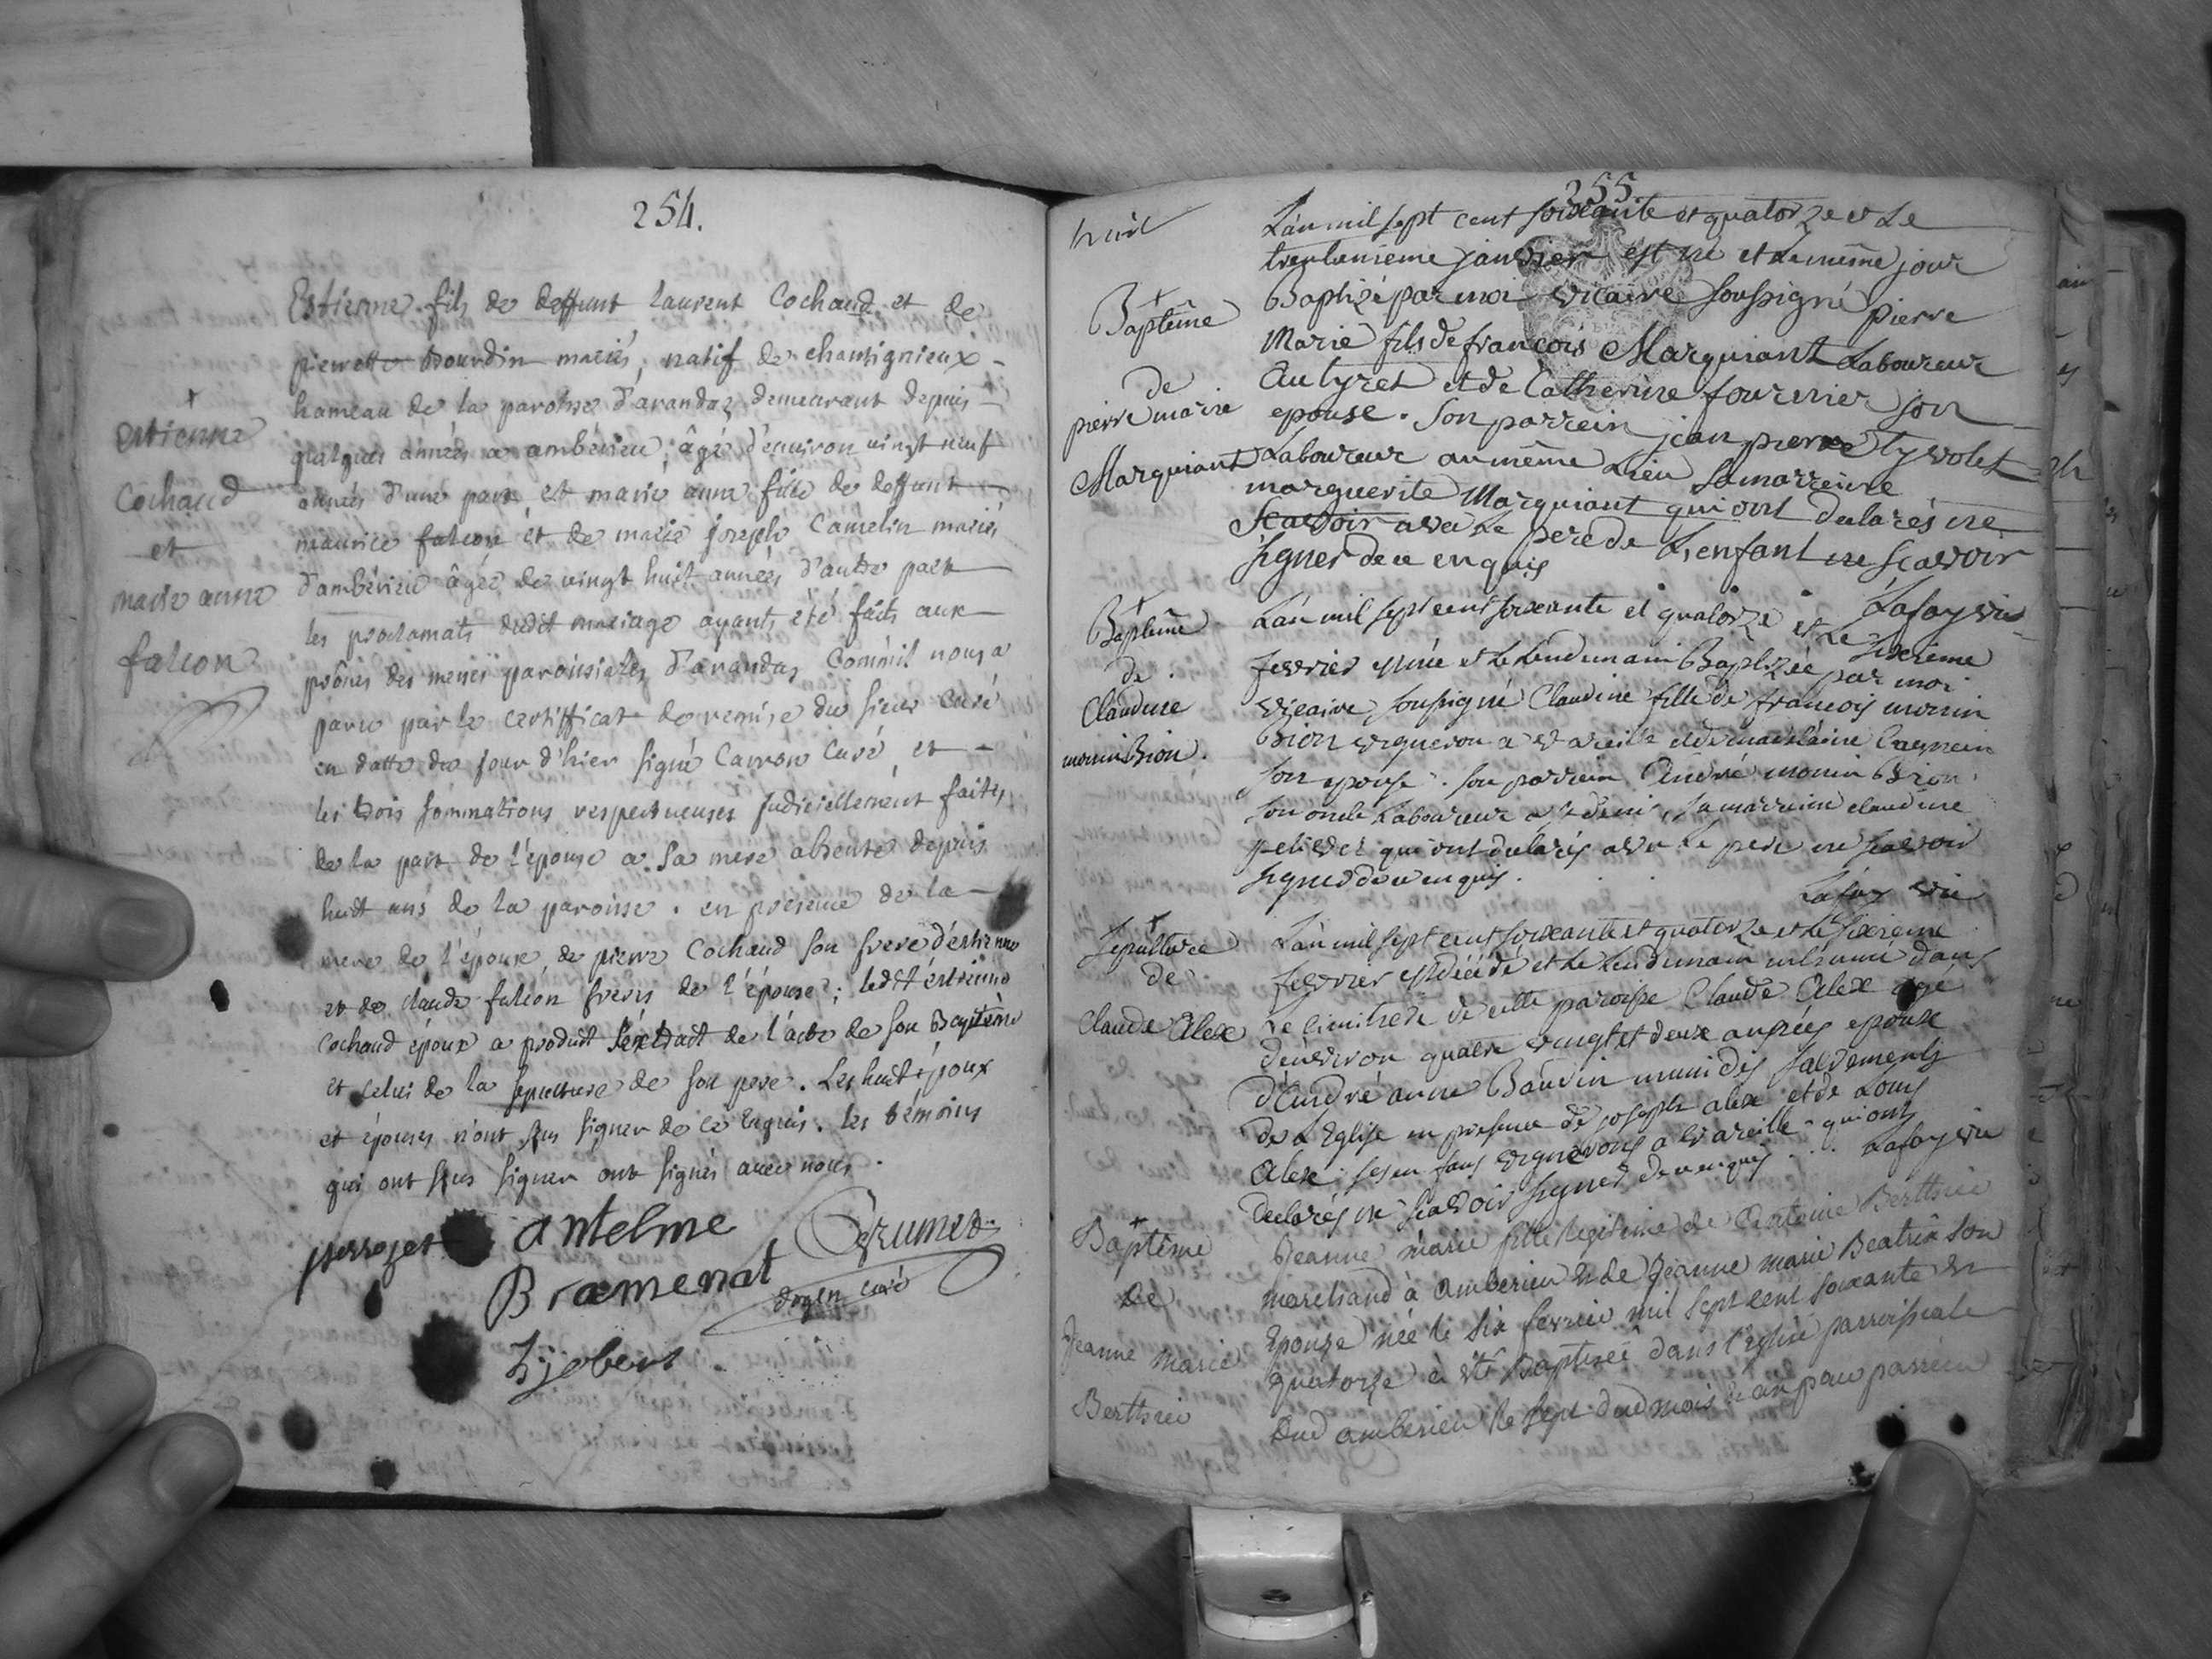 254.
Estienne fils de deffunt laurent Cochaud et de
pierrette Bourdin mariés, natif de chantignieux
hameau de la paroisse d'arandas demeurant depuis
quelques années a ambérieu, âgé d'environ vingt neuf
années d'une part et marie anne fille de deffunt
maurice falcon et de marie joseph Camelin mariés
d'ambérieu âgée de vingt huit années d'autre part
les proclamats dudit mariage ayants été faits aux
prônes des messes paroissiales d'arandas Comme il nous a
paru par le certifficat de remise du sieur curé
en datte du jour d'hier signé Carron Curé et
les trois sommations respectueuses judiciellement faites
de la part de l'épouse a sa mere absente depuis
huit ans de la paroisse. en présence de la
mere de l'époux, de pierre Cochaud son frere d'estienne
et de claude falcon freres de l'épouse; ledit éstienne
Cochaud époux a produit l'éxtrait de l'acte de son Baptême
et celui de la sepulture de son pere. Les huit époux
et épouses n'ont sçus signer de ce Enquis. les témoins
qui ont sçus signer ont signés avec nous.
antelme
Bramenat
doyen curé
Estienne
Cochaud
et
marie anne
falcon
255
huit
L'an mil sept cent soixante et quatorze et Le
trentunieme janvier est né et le même jour
Baptizé par moi vicaire soussigné pierre
Marie fils de francois Marguiant Laboureur
au tyret et de Catherine fournier son
epouse. Son parrein jean pierre tyvolet
Laboureur au même Lieu sa marreine
marguerite Marguiant qui ont declarés ne
Scavoir avec Le pere de L'enfant ne scavoir
signer de ce enquis
Lafay vic
Baptême
de
pierre marie
Marguiant
L'an mil sept cent soixante et quatorze et Le sixieme
fevrier est née et Le lendemain Baptizée par moi
vicaire soussigné Claudine fille de francois monin
Bion vigneron a vareille et de madelaine
son epouse. son parrein André monin Bion
son oncle Laboureur a st denis, sa marreine claudine
qui ont declarés avec Le pere ne scavoir
signer de ce enquis.
Lafay vic
Baptême
de
Claudine
monin Bion.
L'an mil sept cent soixante et quatorze et Le sixieme
fevrier est décédé et Le Lendemain inhumé dans
Le cimitiere de cette paroisse Claude Alex agé
d'environ quatre vingt et deux années epoux
d'Andréanne Baudin muni des sacrements
de L'Eglise en presence de joseph alex et de Louis
Alex ses enfans vignerons a vareille qui ont
declarés ne scavoir signer de ce enquis . . . Lafay vic
Sepulture
de
Claude Alex
Jeanne marie fille legitime de Antoine Berthier
marchand à amberieu & de Jeanne marie Beatrix son
Epouse née le six fevrier mil sept cent soixante &
quatorze a été Baptisée dans l'église parroissiale
dud amberieu le sept dud mois & an par parrein
Baptême
De
Jeanne Marie
Berthier